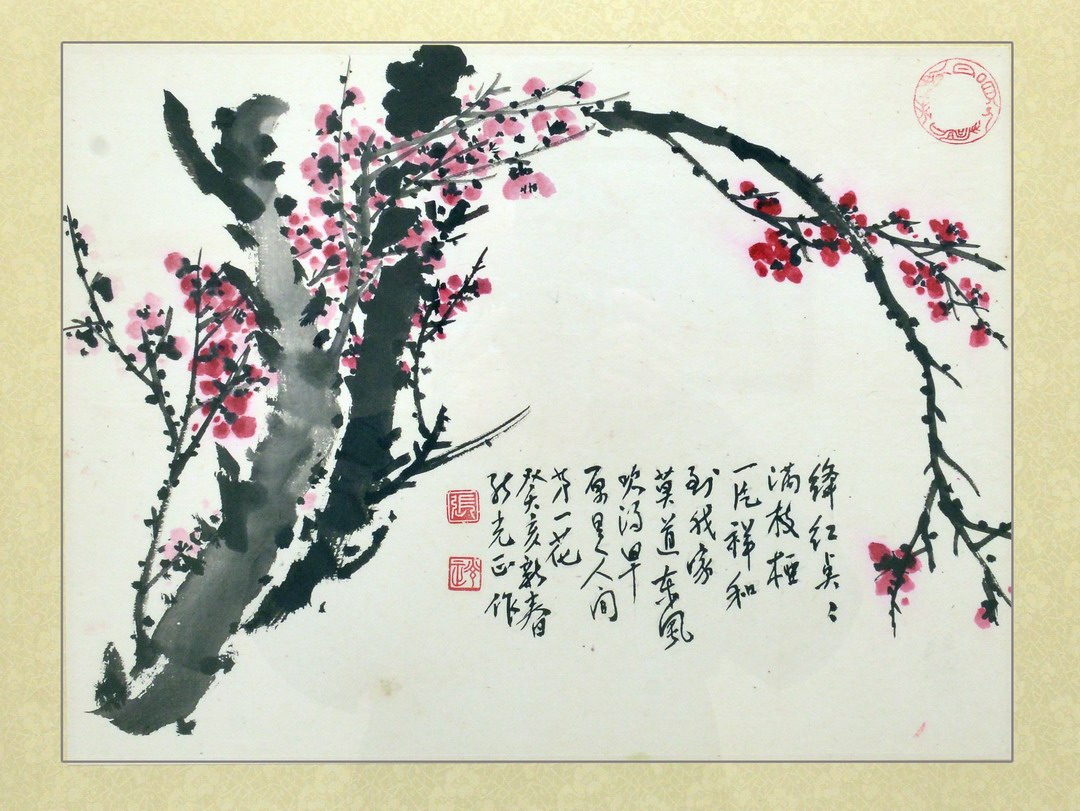 绛红点々
满枝桠
一片祥和
到我家
莫道东風
吹得早
原是人间
第一花
癸亥新春
光正作
張